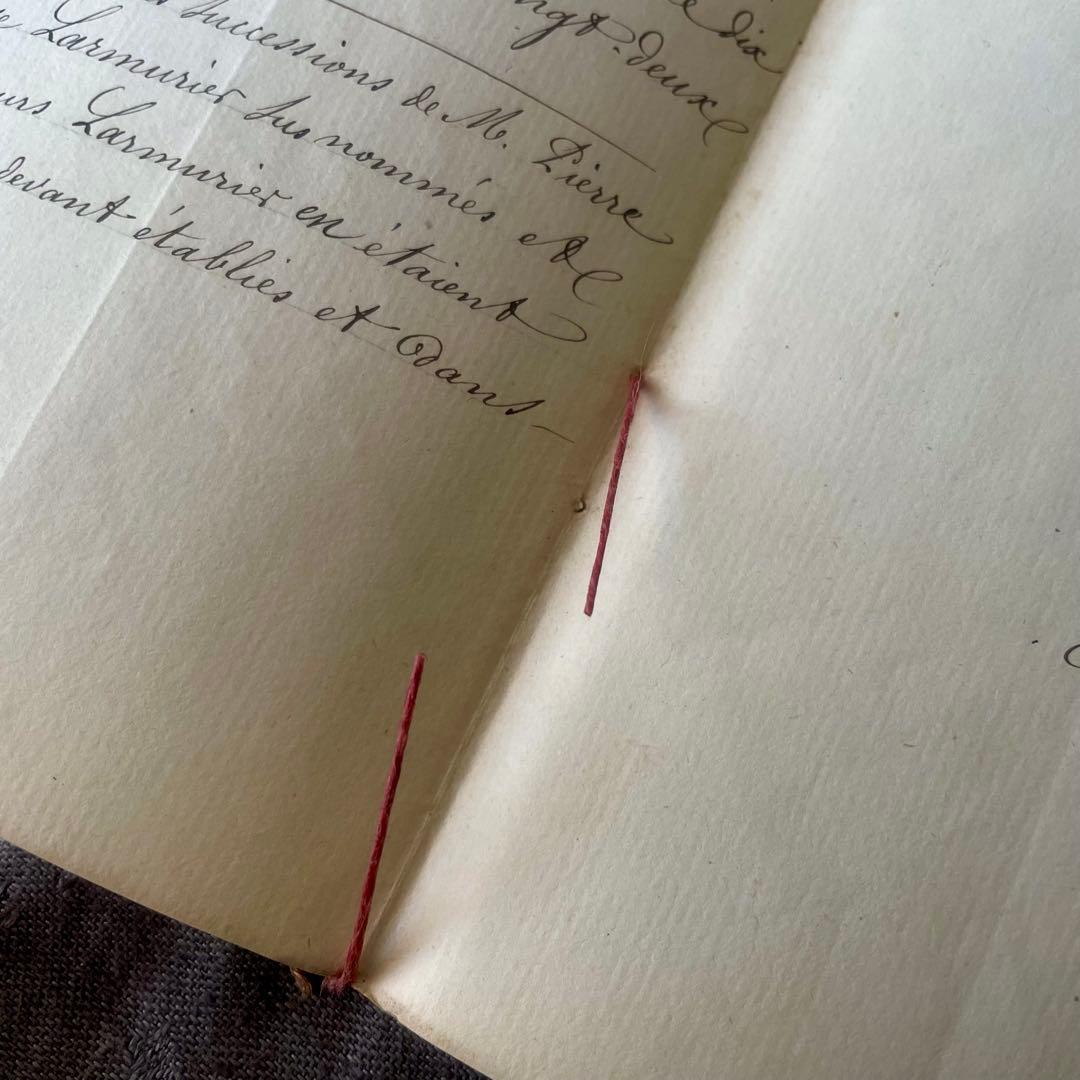 e dix
ngt-deux
Successions de M. Pierre
Larmurier sus nommés et
urs Larmurier en étaient
devant établies et dans